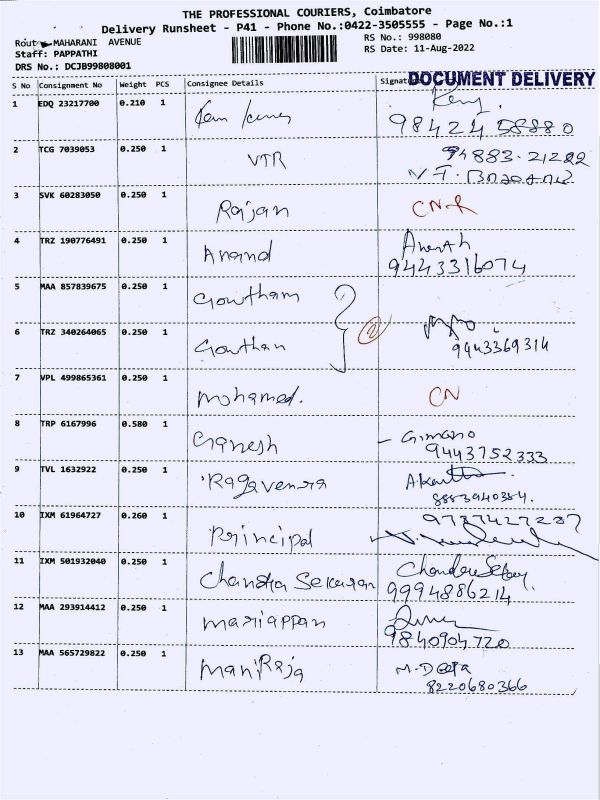 THE PROFESSIONAL COURIERS, Coimbatore
Delivery Runsheet - P41 - Phone No.:0422-3505555 - Page No.:1
Route MAHARANI AVENUE
RS No.: 998080
Staff: PAPPATHI
RS Date: 11-Aug-2022
DRS No.: DCJB99808001
DOCUMENT DELIVERY
S No Consignment No Weight PCS Consignee Details Signature
1 EDQ 23217700 0.210 1
98424 58880
2 TCG 7039053 0.250 1 VTR
94883.21282
3 SVK 60283050 0.250 1 Rajan CN-R
4 TRZ 190776491 0.250 1 Anand
9443316074
5 MAA 857839675 0.250 1 Gowtham
6 TRZ 340264065 0.250 1 Gowthan 2
9943369314
7 VPL 499865361 0.250 1 Mohamed. CN
8 TRP 6167996 0.580 1 Ganesh
9443752333
9 TVL 1632922 0.250 1 Ragavenra
8883940354.
10 IXM 61964727 0.260 1 Principal
9787427287
11 IXM 501932040 0.250 1 Chandra Sekaran
9994886214
12 MAA 293914412 0.250 1 mariappan
9840904720
13 MAA 565729822 0.250 1 ManiRaja M.Deepa
8220680366